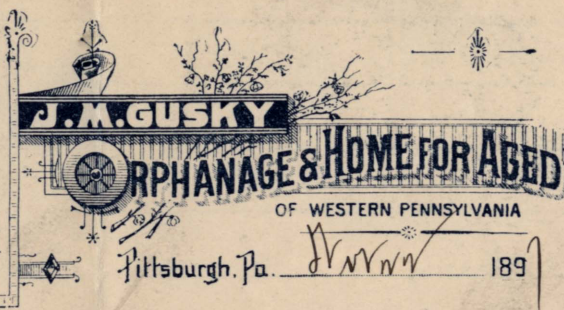 J.M.GUSKY
ORPHANAGE & HOME FOR AGED
OF WESTERN PENNSYLVANIA
Pittsburgh, Pa. 1897